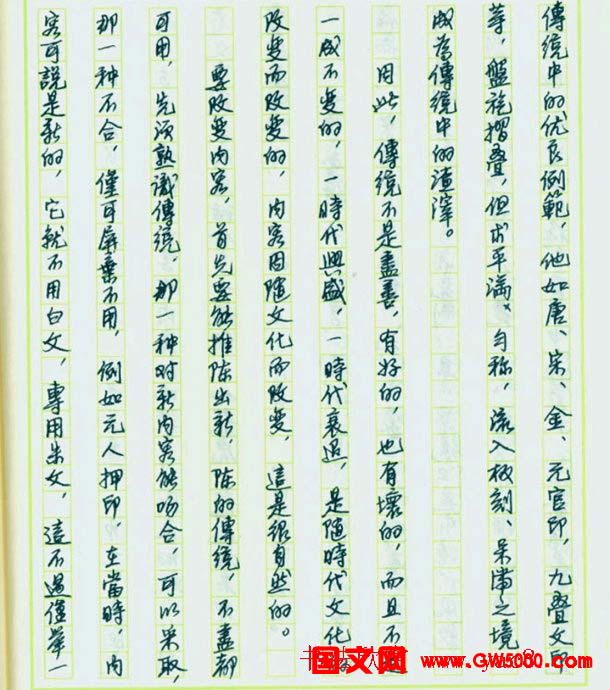 傳統中的优良例範，他如唐、宋、金、元官印，九叠文印
等，盤旋摺叠，但求平满、匀称，流入板刻、呆滯之境
成為傳統中的渣滓。
因此，傳統不是盡善，有好的，也有壞的，而且不
一成不变的，一時代興盛，一時代衰退，是随時代文化
改变而改变的，内容因随文化而改变，這是很自然的。
要改变内容，首先要能推陈出新，陈的傳统，不盡都
可用，先须熟識傳统，那一种对新内容能吻合，可以采取，
那一种不合，僅可屏棄不用，例如元人押印，在當時，内
容可說是新的，它就不用白文，專用朱文，這不過僅举一
国文网
WWW.GW5000.COM